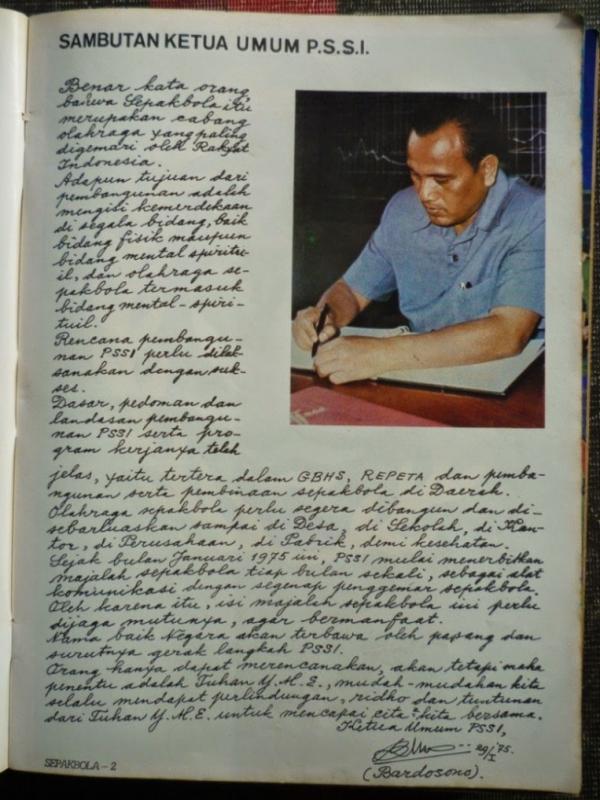 SAMBUTAN KETUA UMUM P.S.S.I.
Benar kata orang
bahwa Sepakbola itu
merupakan cabang
olahraga yang paling
digemari oleh Rakyat
Indonesia.
Adapun tujuan dari
pembangunan adalah
mengisi kemerdekaan
di segala bidang, baik
bidang fisik maupun
bidang mental spiritu-
il, dan olahraga se-
pakbola termasuk
bidang mental-spiri-
tuil.
Rencana pembangu-
nan PSSI perlu dilak-
sanakan dengan suk-
ses.
Dasar, pedoman dan
landasan pembangu-
nan PSSI serta pro-
gram kerjanya telah
jelas, yaitu tertera dalam GBHS, REPETA dan pemba-
ngunan serta pembinaan sepakbola di Daerah.
Olahraga sepakbola perlu segera dibangun dan di-
sebarluaskan sampai di Desa, di Sekolah, di Kan-
tor, di Perusahaan, di Pabrik, demi kesehatan.
Sejak bulan Januari 1975 ini, PSSI mulai menerbitkan
majalah sepakbola tiap bulan sekali, sebagai alat
komunikasi dengan segenap penggemar sepakbola.
Oleh karena itu, isi majalah sepakbola ini perlu
dijaga mutunya, agar bermanfaat.
Nama baik Negara akan terbawa oleh pasang dan
surutnya gerak langkah PSSI.
Orang hanya dapat merencanakan, akan tetapi maha
penentu adalah Tuhan Y.M.E., mudah-mudahan kita
selalu mendapat perlindungan, ridho dan tuntunan
dari Tuhan Y.M.E. untuk mencapai cita2 kita bersama.
Ketua Umum PSSI,
29/I '75.
(Bardosono).
SEPAKBOLA - 2